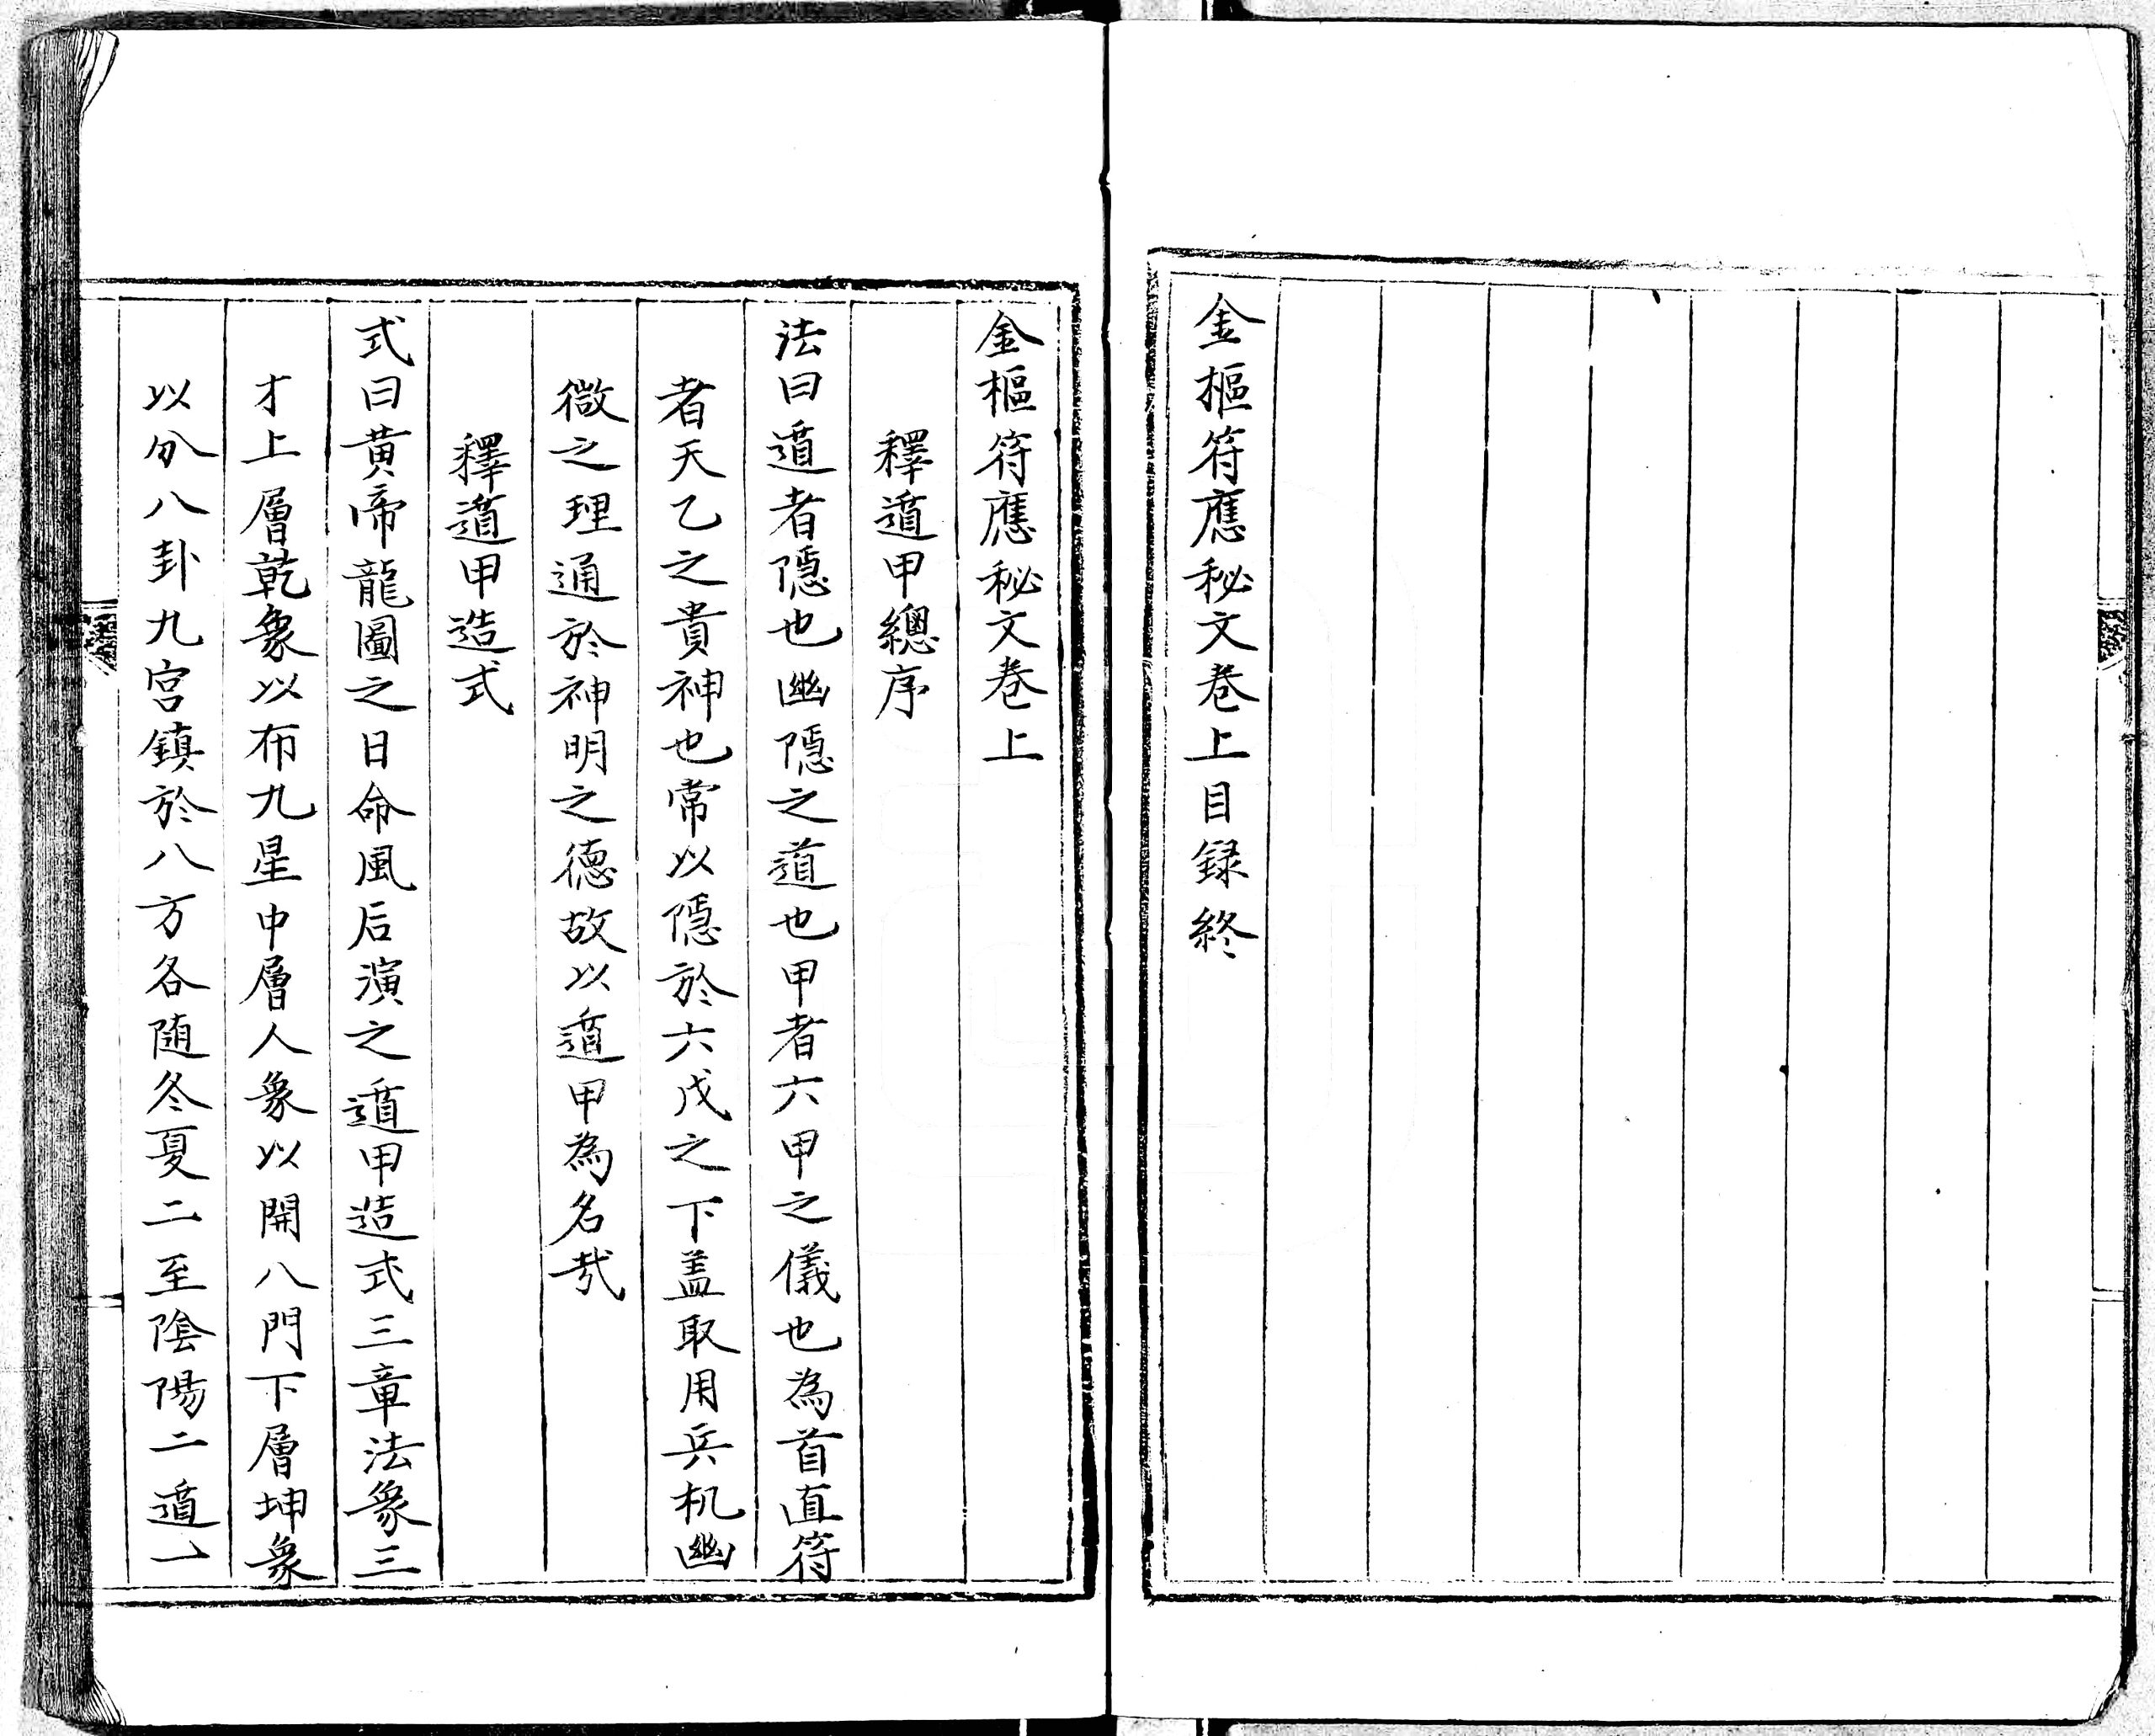 金樞符應秘文卷上目録終
金樞符應秘文卷上
釋遁甲總序
法曰遁者隱也幽隱之道也甲者六甲之儀也為首直符
者天乙之貴神也常以隱於六戊之下盖取用兵机幽
微之理通於神明之德故以遁甲為名哉
釋遁甲造式
式曰黄帝龍圖之日命風后演之遁甲造式三章法象三
才上層乾象以布九星中層人象以開八門下層坤象
以分八卦九宮鎮於八方各随冬夏二至陰陽二遁一